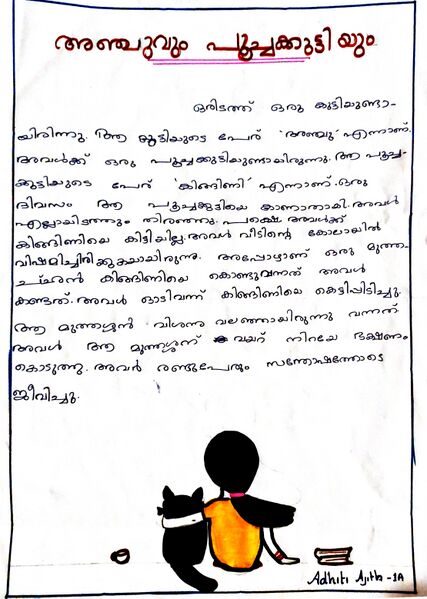 അഞ്ചുവും പൂച്ചക്കുട്ടിയും
ഒരിടത്ത് ഒരു കുട്ടിയുണ്ടാ-
യിരിന്നു. ആ കുട്ടിയുടെ പേര് 'അഞ്ചു' എന്നാണ്.
അവൾക്ക് ഒരു പൂച്ചക്കുട്ടിയുണ്ടായിരുന്നു. ആ പൂച്ച-
കുട്ടിയുടെ പേര് 'കിങ്ങിണി' എന്നാണ്. ഒരു
ദിവസം ആ പൂച്ചക്കുട്ടിയെ കാണാതായി. അവൾ
എല്ലായിടത്തും തിരഞ്ഞു. പക്ഷെ അവൾക്ക്
കിങ്ങിണിയെ കിട്ടിയില്ല. അവൾ വീടിന്റെ കോലായിൽ
വിഷമിച്ചിരിക്കുകയായിരുന്നു. അപ്പോഴാണ് ഒരു മുത്ത-
ച്ഛൻ കിങ്ങിണിയെ കൊണ്ടുവന്നത് അവൾ
കണ്ടത്. അവൾ ഓടിവന്ന് കിങ്ങിണിയെ കെട്ടിപ്പിടിച്ചു.
ആ മുത്തശ്ശൻ വിശന്നു വലഞ്ഞായിരുന്നു വന്നത്
അവൾ ആ മുത്തശ്ശന് വയറ് നിറയേ ഭക്ഷണം
കൊടുത്തു. അവർ രണ്ടുപേരും സന്തോഷത്തോടെ
ജീവിച്ചു.
Adhiti Ajith - 1A